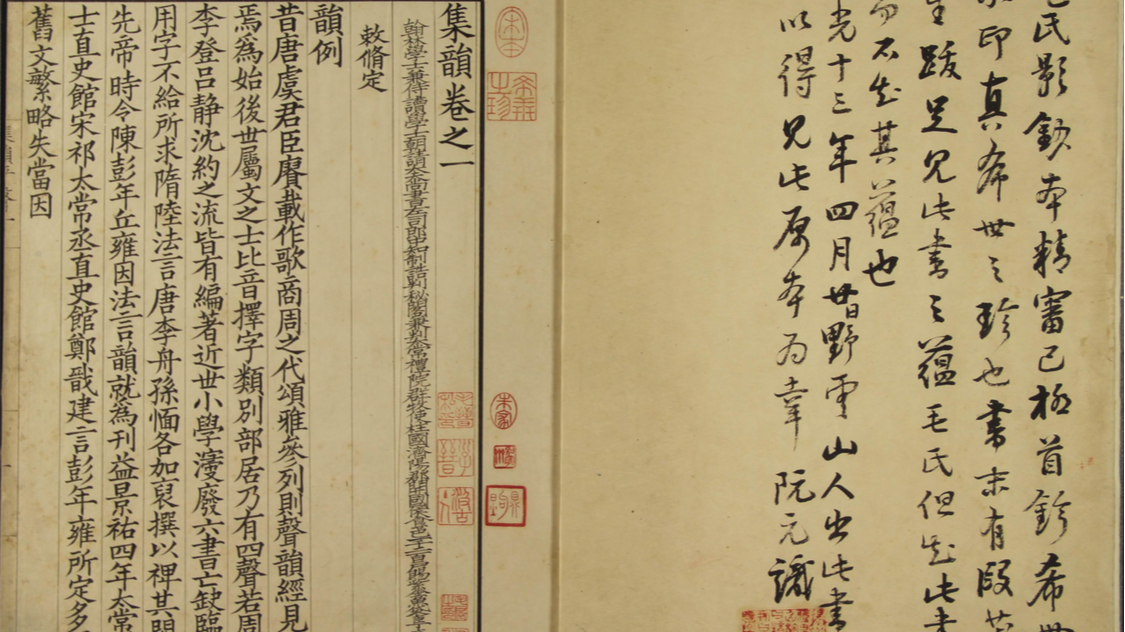 毛氏影鈔本精審已極首鈐希世
印真希世之珍也書末有段
跋足見此書之蘊毛氏但知此書
而不知其蘊也
光十三年四月廿日野雲山人出此書
以得見此原本為幸 阮元識
集韻卷之一
翰林學士兼侍讀學士朝請大夫尚書左司郎中知制誥判秘閣兼判太常禮院群牧使柱國濟陽郡開國侯食邑一千二百戶賜紫金魚袋
敕脩定
韻例
昔唐虞君臣賡載作歌商周之代頌雅參列則聲韻經見
焉為始後世屬文之士比音擇字類別部居乃有四聲若周
李登呂靜沈約之流皆有編著近世小學寖廢六書亡缺臨
用字不給所求隋陸法言唐李舟孫愐各加裒撰以裨其闕
先帝時令陳彭年丘雍因法言韻就為刊益景祐四年太常
士直史館宋祁太常丞直史館鄭戩建言彭年雍所定多
舊文繁略失當因